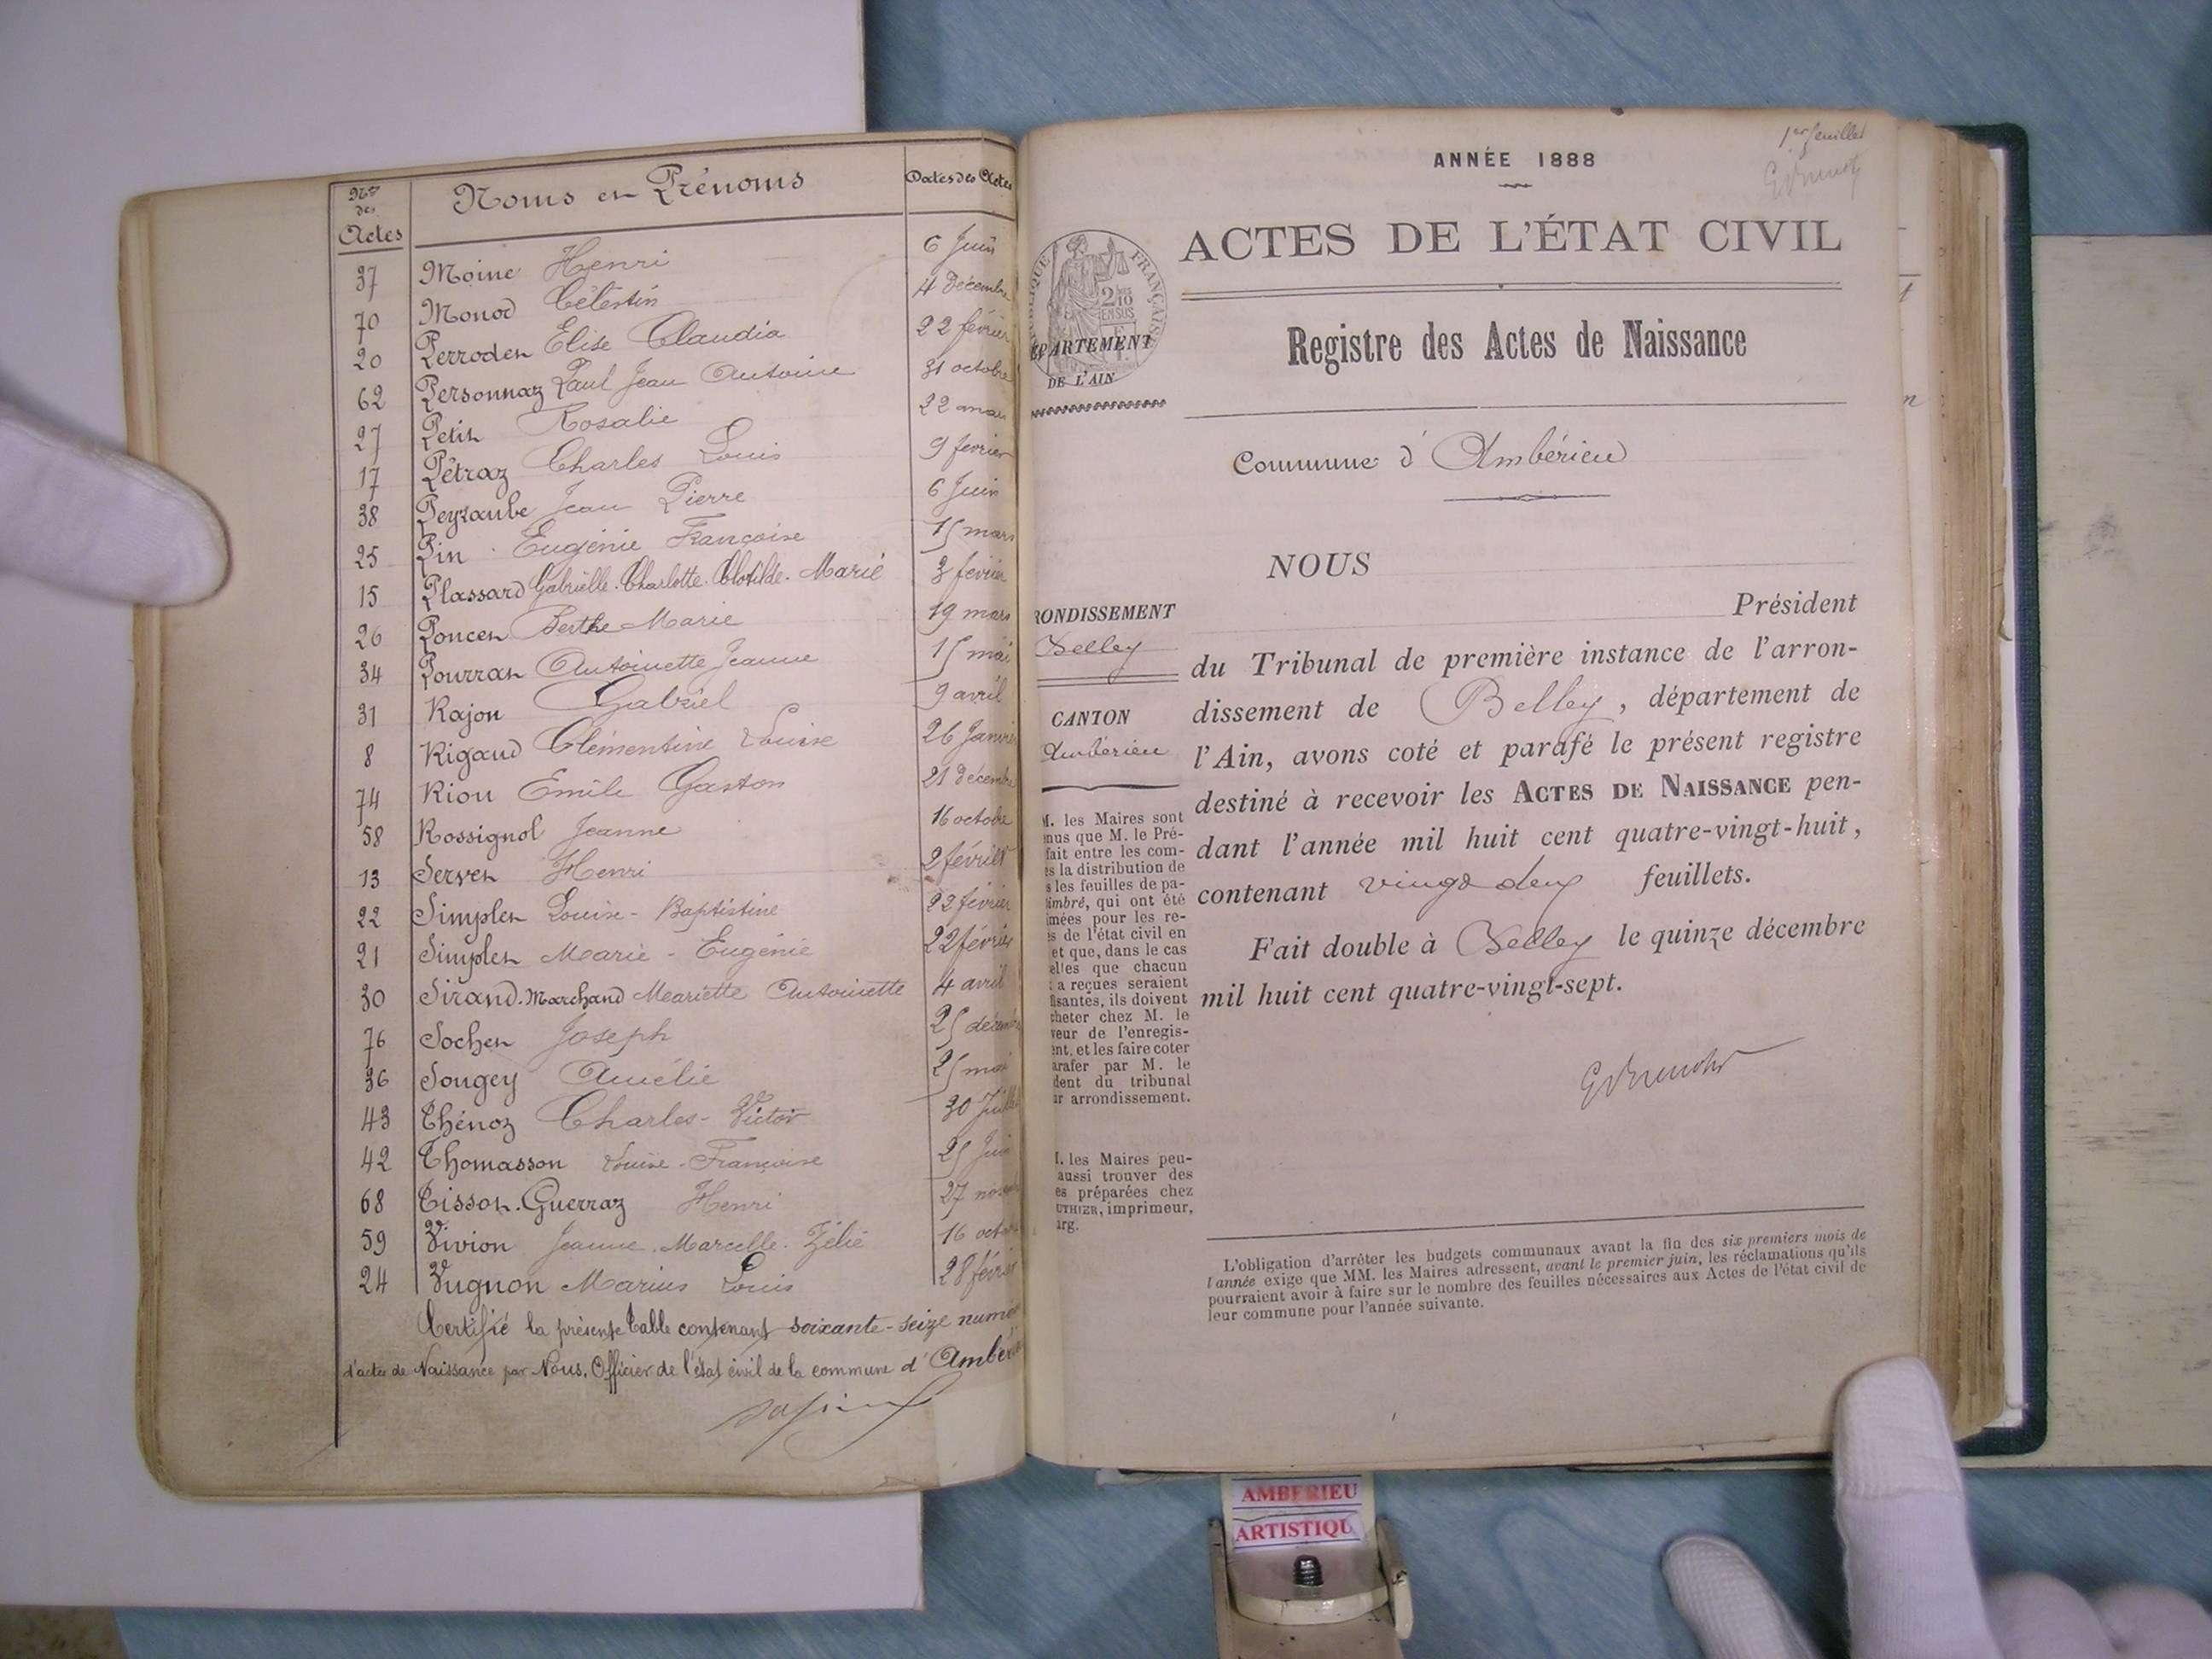 Nos des Actes Noms et Prénoms Dates des Actes
37 Moine Henri 6 Juin
70 Monod Célestin 4 Décembre
20 Perrodet Elise Claudia 22 février
62 Personnaz Paul Jean Antoine 31 octobre
27 Petit Rosalie 22 mars
17 Pétraz Charles Louis 9 février
38 Peyraube Jean Pierre 6 Juin
25 Pin Eugénie Françoise 15 mars
15 Plassard Gabrielle. Charlotte. Clotilde. Marie 3 février
26 Poncet Berthe Marie 19 mars
34 Pourrat Antoinette Jeanne 15 mai
31 Rajon Gabriel 9 avril
8 Rigaud Clémentine Louise 26 Janvier
74 Riou Emile Gaston 21 décembre
58 Rossignol Jeanne 16 octobre
13 Servet Henri 2 février
22 Simplet Louise - Baptistine 22 février
21 Simplet Marie - Eugénie 22 février
30 Sirand. Marchand Mariette Antoinette 4 avril
76 Sochet Joseph 25 décembre
36 Sougey Amélie 25 mai
43 Thénoz Charles - Victor 30 Juillet
42 Thomasson Louise - Françoise 25 Juin
68 Tissot. Guerraz Henri 27 nov
59 Vivion Jeanne. Marcelle. Zélie 16 octo
24 Vugnon Marius Louis 28 février
Certifié la présente Table contenant soixante-seize numé
d'actes de Naissance par Nous, Officier de l'état civil de la commune d'Ambérieu
1er feuillet
ANNÉE 1888
ACTES DE L'ÉTAT CIVIL
RÉPUBLIQUE FRANÇAISE
2 10
EN SUS
DÉPARTEMENT
DE L'AIN
Registre des Actes de Naissance
Commune d'Ambérieu
NOUS
Président
du Tribunal de première instance de l'arron-
dissement de Belley, département de
l'Ain, avons coté et parafé le présent registre
destiné à recevoir les ACTES DE NAISSANCE pen-
dant l'année mil huit cent quatre-vingt-huit,
contenant vingt deux feuillets.
Fait double à Belley le quinze décembre
mil huit cent quatre-vingt-sept.
RONDISSEMENT
Belley
CANTON
Ambérieu
M. les Maires sont
nus que M. le Pré-
fait entre les com-
es la distribution de
s les feuilles de pa-
timbré, qui ont été
imées pour les re-
es de l'état civil en
et que, dans le cas
elles que chacun
a reçues seraient
fisantes, ils doivent
cheter chez M. le
veur de l'enregis-
ent, et les faire coter
arafer par M. le
dent du tribunal
ur arrondissement.
I. les Maires peu-
aussi trouver des
es préparées chez
UTHIER, imprimeur,
urg.
L'obligation d'arrêter les budgets communaux avant la fin des six premiers mois de
l'année exige que MM. les Maires adressent, avant le premier juin, les réclamations qu'ils
pourraient avoir à faire sur le nombre des feuilles nécessaires aux Actes de l'état civil de
leur commune pour l'année suivante.
AMBERIEU
ARTISTIQU